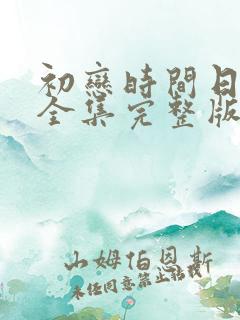 初戀時間日
全集完整版
山姆伯恩斯
未经同意禁止转载